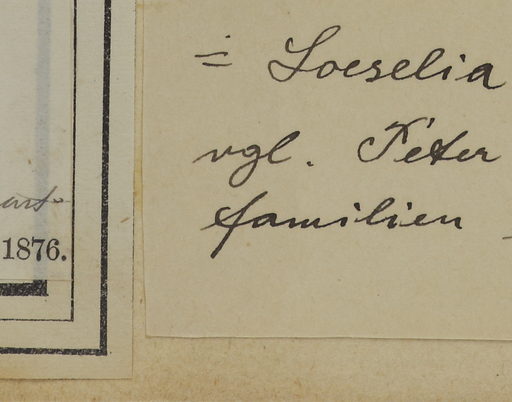 1876.
= Loeselia
vgl. Peter
familien